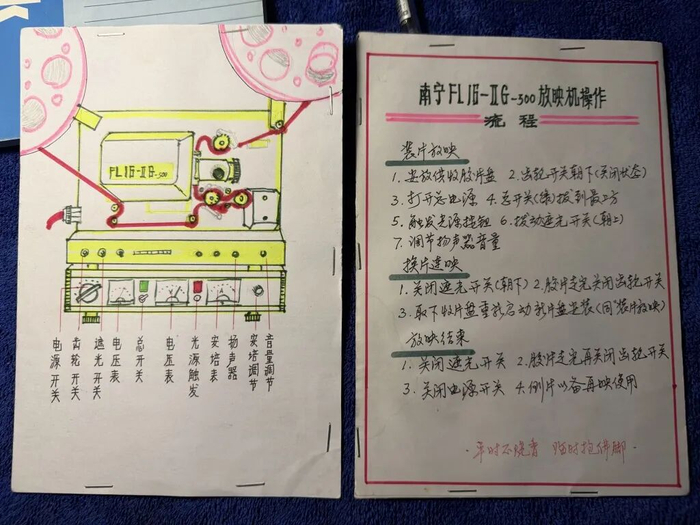 FL16-ⅡG-500
电源开关
齿轮开关
遮光开关
电压表
总开关
电压表
光源触发
安培表
扬声器
安培调节
音量调节
南宁FL16-ⅡG-500放映机操作
流程
装片放映
1. 安放供收胶片盘 2. 齿轮开关朝下(关闭状态)
3. 打开总电源 4. 总开关(绿)拔到最上方
5. 触发光源按钮 6. 拨动遮光开关(朝上)
7. 调节扬声器音量
换片连映
1. 关闭遮光开关(朝下) 2. 胶片走完关闭齿轮开关
3. 取下收片盘重新启动新片盘安装(同装片放映)
放映结束
1. 关闭遮光开关 2. 胶片走完再关闭齿轮开关
3. 关闭电源开关 4. 倒片以备再映使用
·平时不烧香 临时抱佛脚·